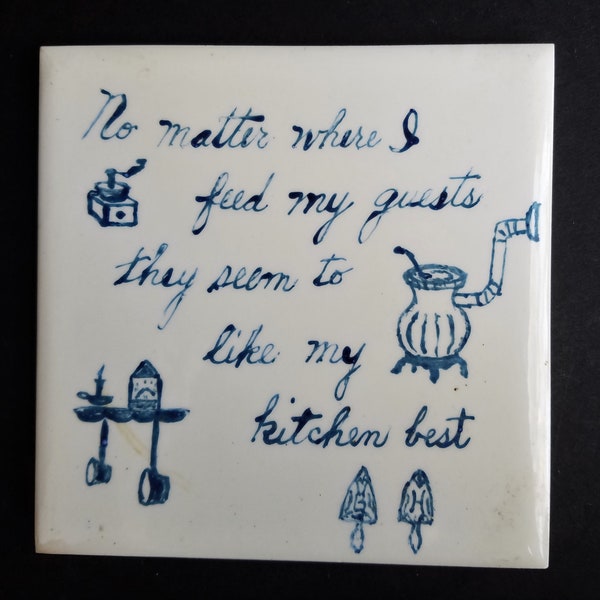 No matter where I
feed my guests
they seem to
like my
kitchen best